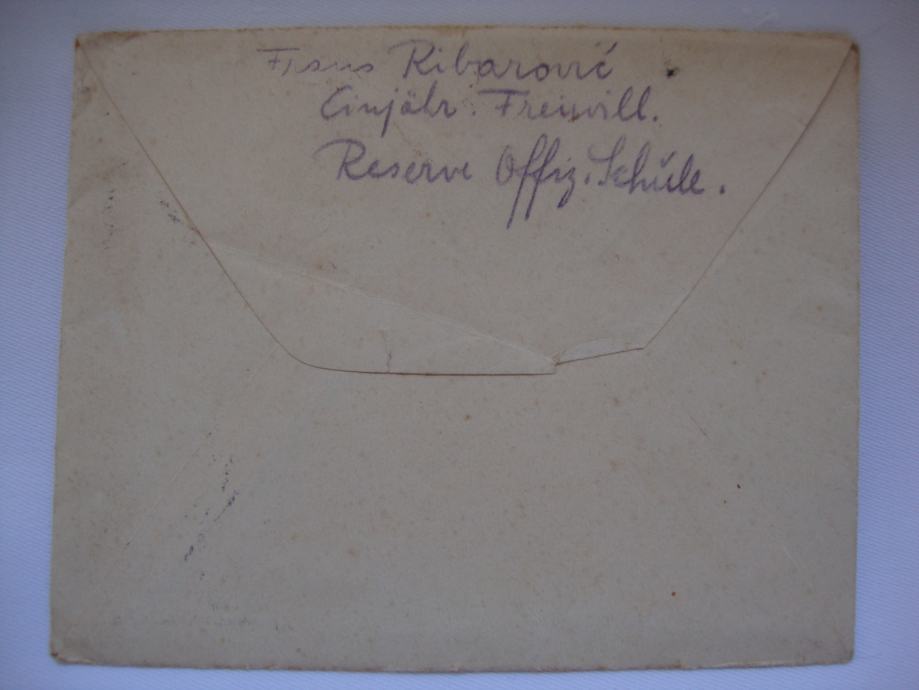 Franz Ribarović
Einjähr. Freiwill.
Reserve Offiz. Schule.